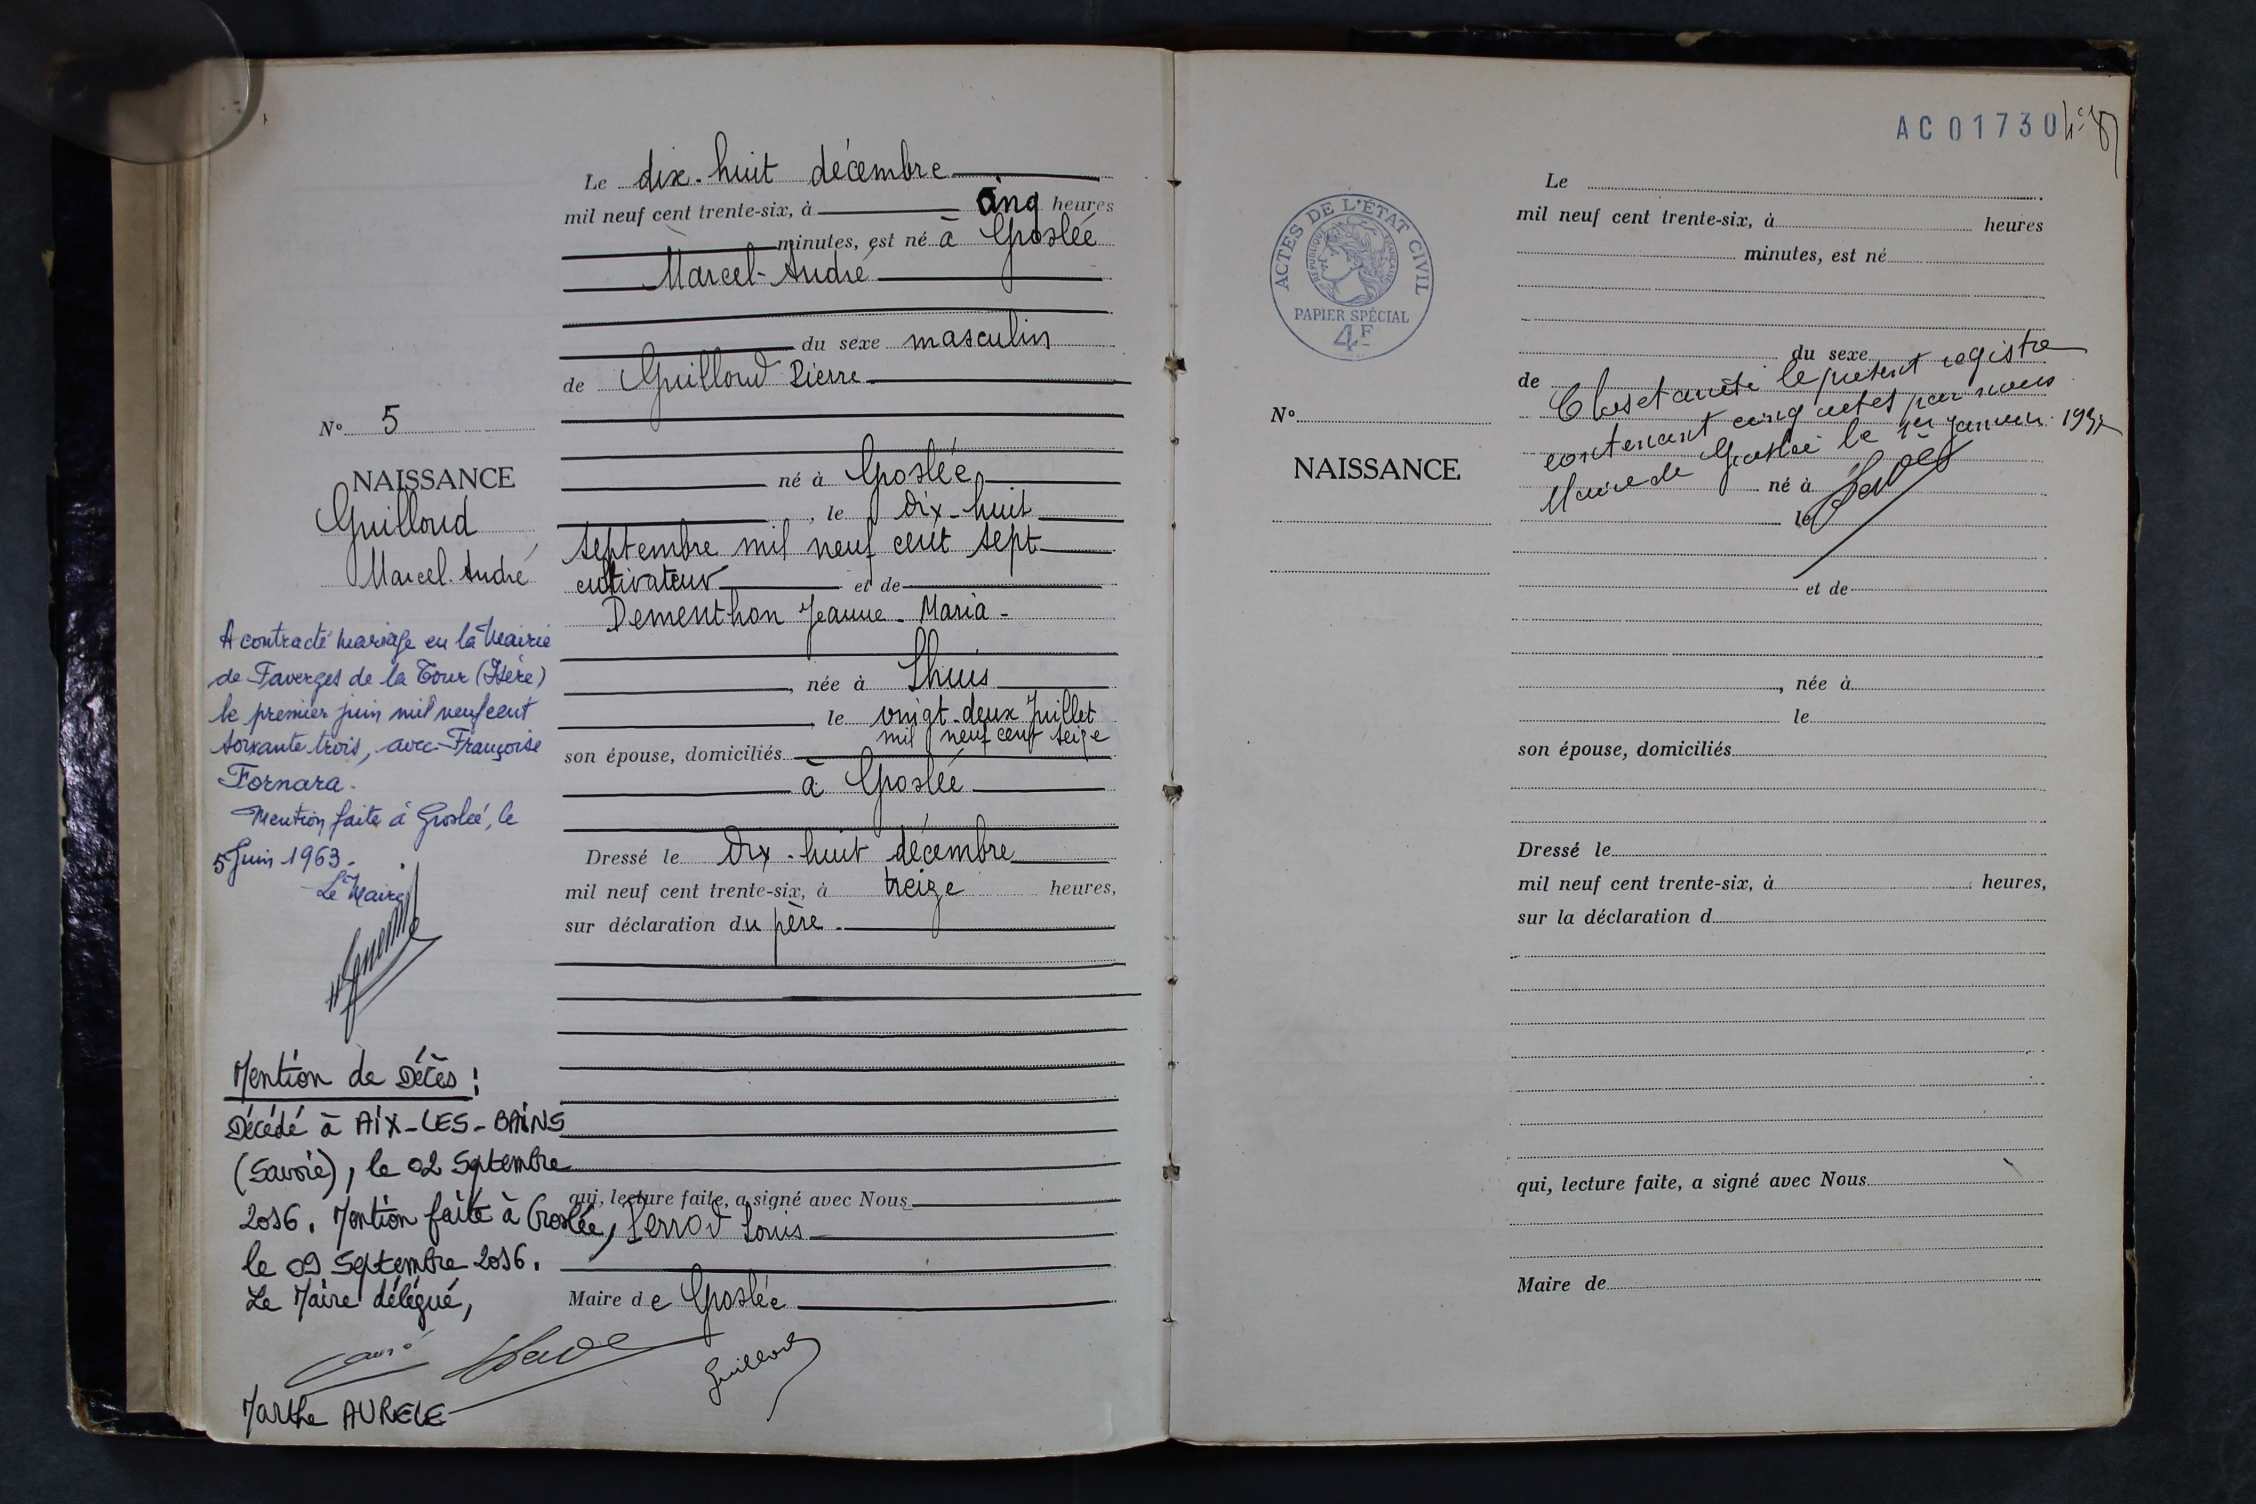 Le dix-huit décembre
mil neuf cent trente-six, à cinq heures
minutes, est né à Groslée
Marcel-André
du sexe masculin
de Guilloud Pierre
né à Groslée
, le dix-huit
septembre mil neuf cent sept
cultivateur et de
Dementhon Jeanne-Maria-
, née à Lhuis
, le vingt-deux Juillet
mil neuf cent seize
son épouse, domiciliés
à Groslée
Dressé le dix-huit décembre
mil neuf cent trente-six, à treize heures,
sur déclaration du père.
qui, lecture faite, a signé avec Nous
Perrod Louis
Maire de Groslée
Guilloud
N° 5
NAISSANCE
Guilloud
Marcel-André
A contracté mariage en la Mairie
de Faverges de la Tour (Isère)
le premier juin mil neuf cent
soixante trois, avec Françoise
Fornara.
Mention faite à Groslée, le
5 Juin 1963.
Le Maire
Mention de Décès :
Décédé à AIX-LES-BAINS
(Savoie), le 02 Septembre
2016. Mention faite à Groslée,
le 09 Septembre 2016.
Le Maire délégué,
Marthe AURELE
AC01730
ACTES DE L'ÉTAT CIVIL
RÉPUBLIQUE FRANÇAISE
PAPIER SPÉCIAL
4F
N°
NAISSANCE
Le
mil neuf cent trente-six, à heures
minutes, est né
du sexe
de
Clos et arrêté le présent registre
contenant cinq actes par nous
Maire de Groslée le 1er Janvier 1937
né à
le
et de
, née à
le
son épouse, domiciliés
Dressé le
mil neuf cent trente-six, à heures,
sur la déclaration d
qui, lecture faite, a signé avec Nous
Maire de